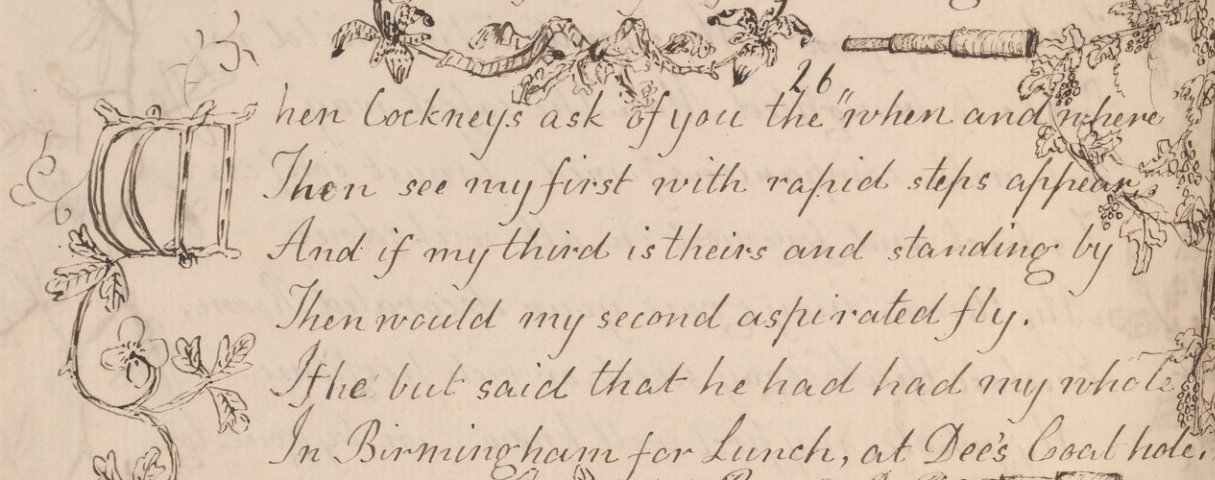 26
When Cockneys ask of you the "when and where
Then see my first with rapid steps appear,
And if my third is theirs and standing by
Then would my second aspirated fly.
If he but said that he had had my whole
In Birmingham for Lunch, at Dee's Coal hole.